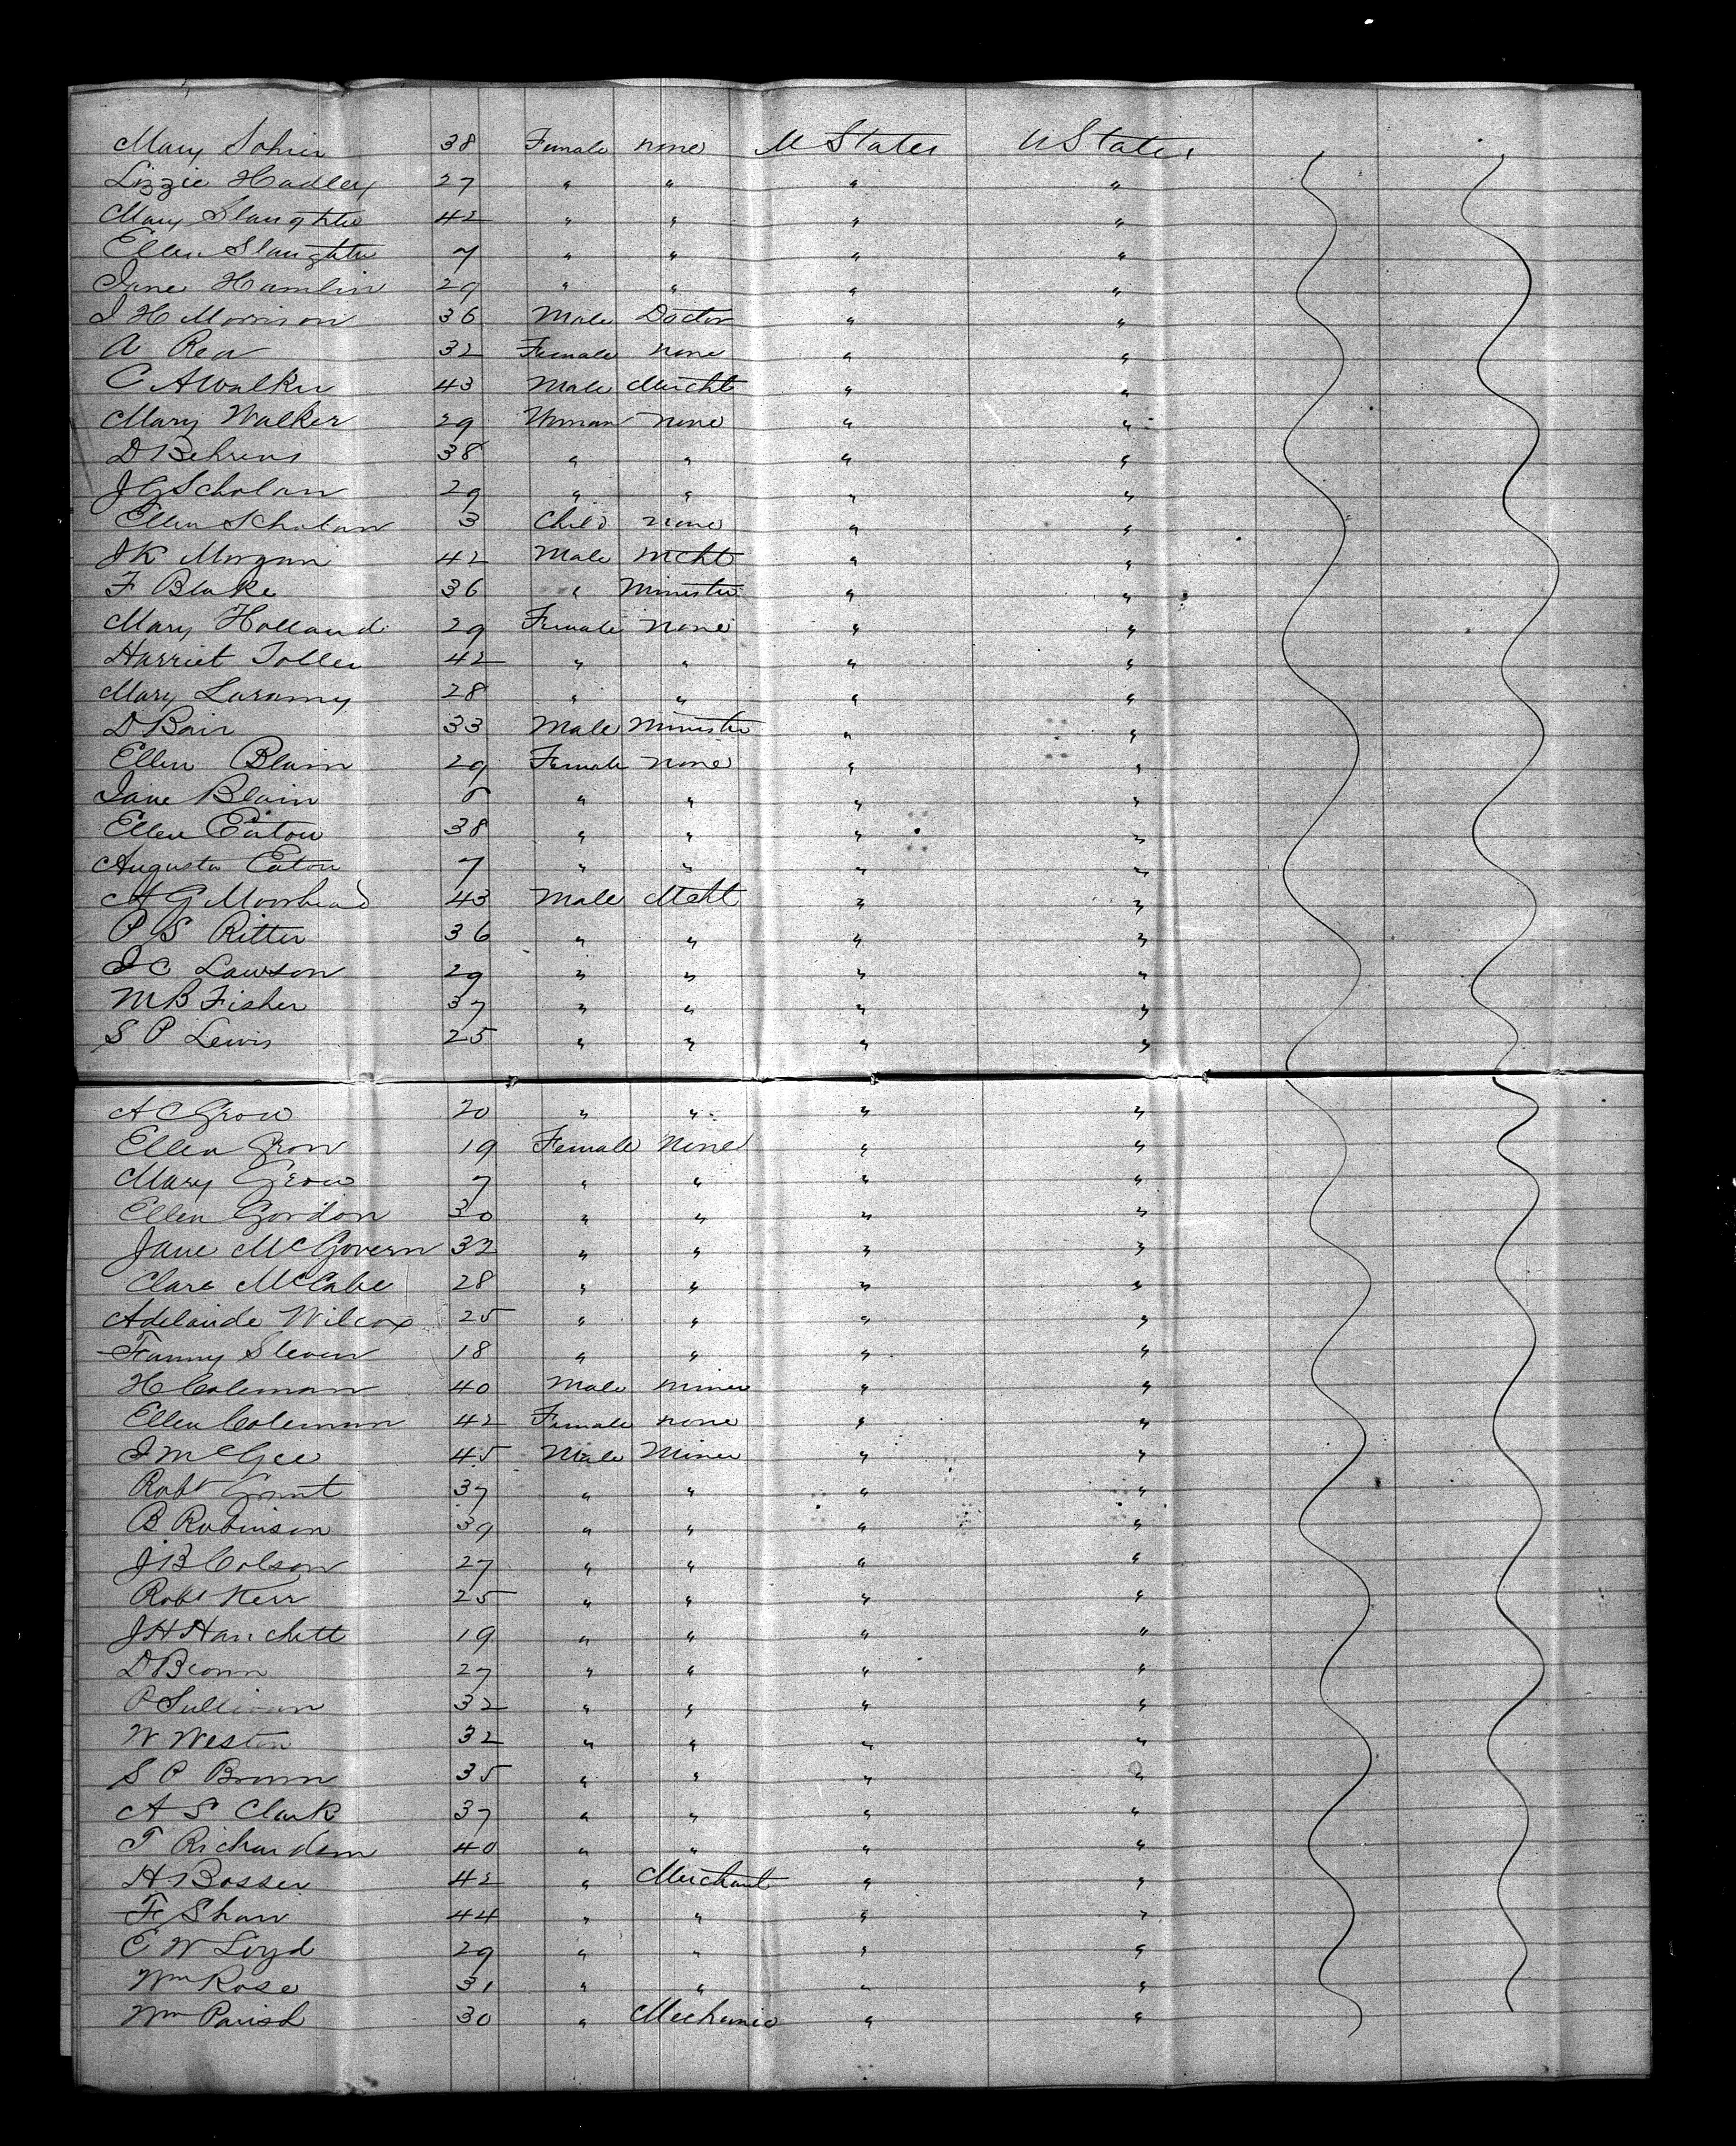 Mary Sohier 38 Female none U States U States
Lizzie Hadley 27 " " " "
Mary Slaughter 42 " " " "
Ellen Slaughter 7 " " " "
Jane Hamlin 29 " " " "
J H Morrison 36 Male Doctor " "
A Rea 32 Female none " "
C A Walker 43 Male Mercht " "
Mary Walker 29 Woman none " "
D Behrens 38 " " " "
J G Scholan 29 " " " "
Ellen Scholan 3 Child none " "
J K Morgan 42 Male Mcht " "
F Blake 36 " Minister " "
Mary Holland 29 Female none " "
Harriet Toller 42 " " " "
Mary Laramy 28 " " " "
D Bair 33 Male Minister " "
Ellen Blain 29 Female none " "
Jane Blain " " " "
Ellen Eaton 38 " " " "
Augusta Eaton 7 " " " "
A G Moorhead 43 Male Mcht " "
P S Ritter 36 " " " "
J C Lawson 29 " " " "
M B Fisher 37 " " " "
S P Lewis 25 " " " "
A C Grow 20 " " " "
Ellen Grow 19 Female None " "
Mary Grow 7 " " " "
Ellen Gordon 30 " " " "
Jane McGovern 32 " " " "
Clara McCabe 28 " " " "
Adelaide Wilcox 25 " " " "
Fanny Steven 18 " " " "
H Coleman 40 Male miner " "
Ellen Coleman 42 Female none " "
J McGee 45 Male Miner " "
Robt Grant 37 " " " "
B Robinson 39 " " " "
J B Colson 27 " " " "
Robt Kerr 25 " " " "
J H Hanchett 19 " " " "
D Brown 27 " " " "
P Sullivan 32 " " " "
W Weston 32 " " " "
S P Brown 35 " " " "
A S Clark 37 " " " "
T Richardson 40 " " " "
H Bosser 42 " Merchant " "
F Shaw 44 " " " "
C W Loyd 29 " " " "
Wm Rose 31 " " " "
Wm Parish 30 " Mechanic " "